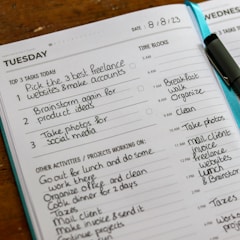 DATE: 8/8/23
TUESDAY
WEDNES
TOP 3 TASKS TODAY:
TIME BLOCKS:
1 Pick the 3 best freelance
websites & make accounts
2 Brainstorm again for
product ideas
3 Take photos for
social media
Breakfast
walk
Organize
clean
Take photos
mail clients
invoice
freelance
websites
Lunch
& Brainstorm
OTHER ACTIVITIES / PROJECTS WORKING ON:
Go out for lunch and do some
work there
Organize office and clean
Cook dinner for 2 days
Taxes
Mail client
Make invoice & send it
Continue projects
Taxes